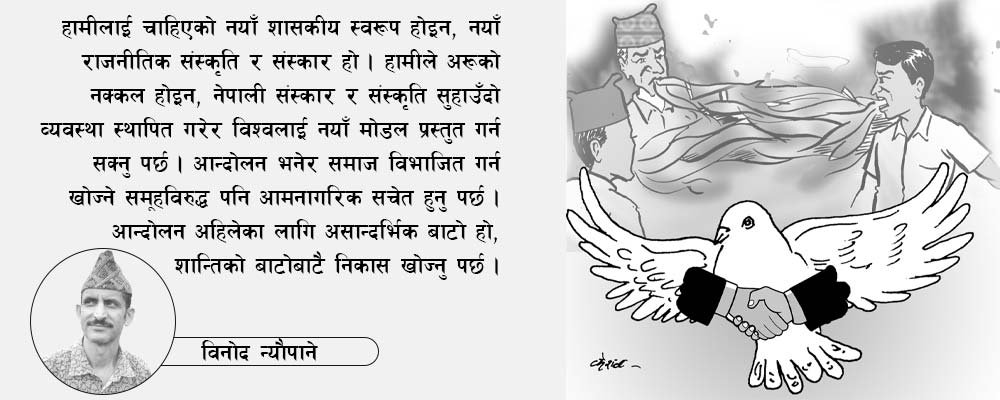 हामीलाई चाहिएको नयाँ शासकीय स्वरूप होइन, नयाँ
राजनीतिक संस्कृति र संस्कार हो । हामीले अरूको
नक्कल होइन, नेपाली संस्कार र संस्कृति सुहाउँदो
व्यवस्था स्थापित गरेर विश्वलाई नयाँ मोडल प्रस्तुत गर्न
सक्नु पर्छ । आन्दोलन भनेर समाज विभाजित गर्न
खोज्ने समूहविरुद्ध पनि आमनागरिक सचेत हुनु पर्छ ।
आन्दोलन अहिलेका लागि असान्दर्भिक बाटो हो,
शान्तिको बाटोबाटै निकास खोज्नु पर्छ ।
विनोद न्यौपाने